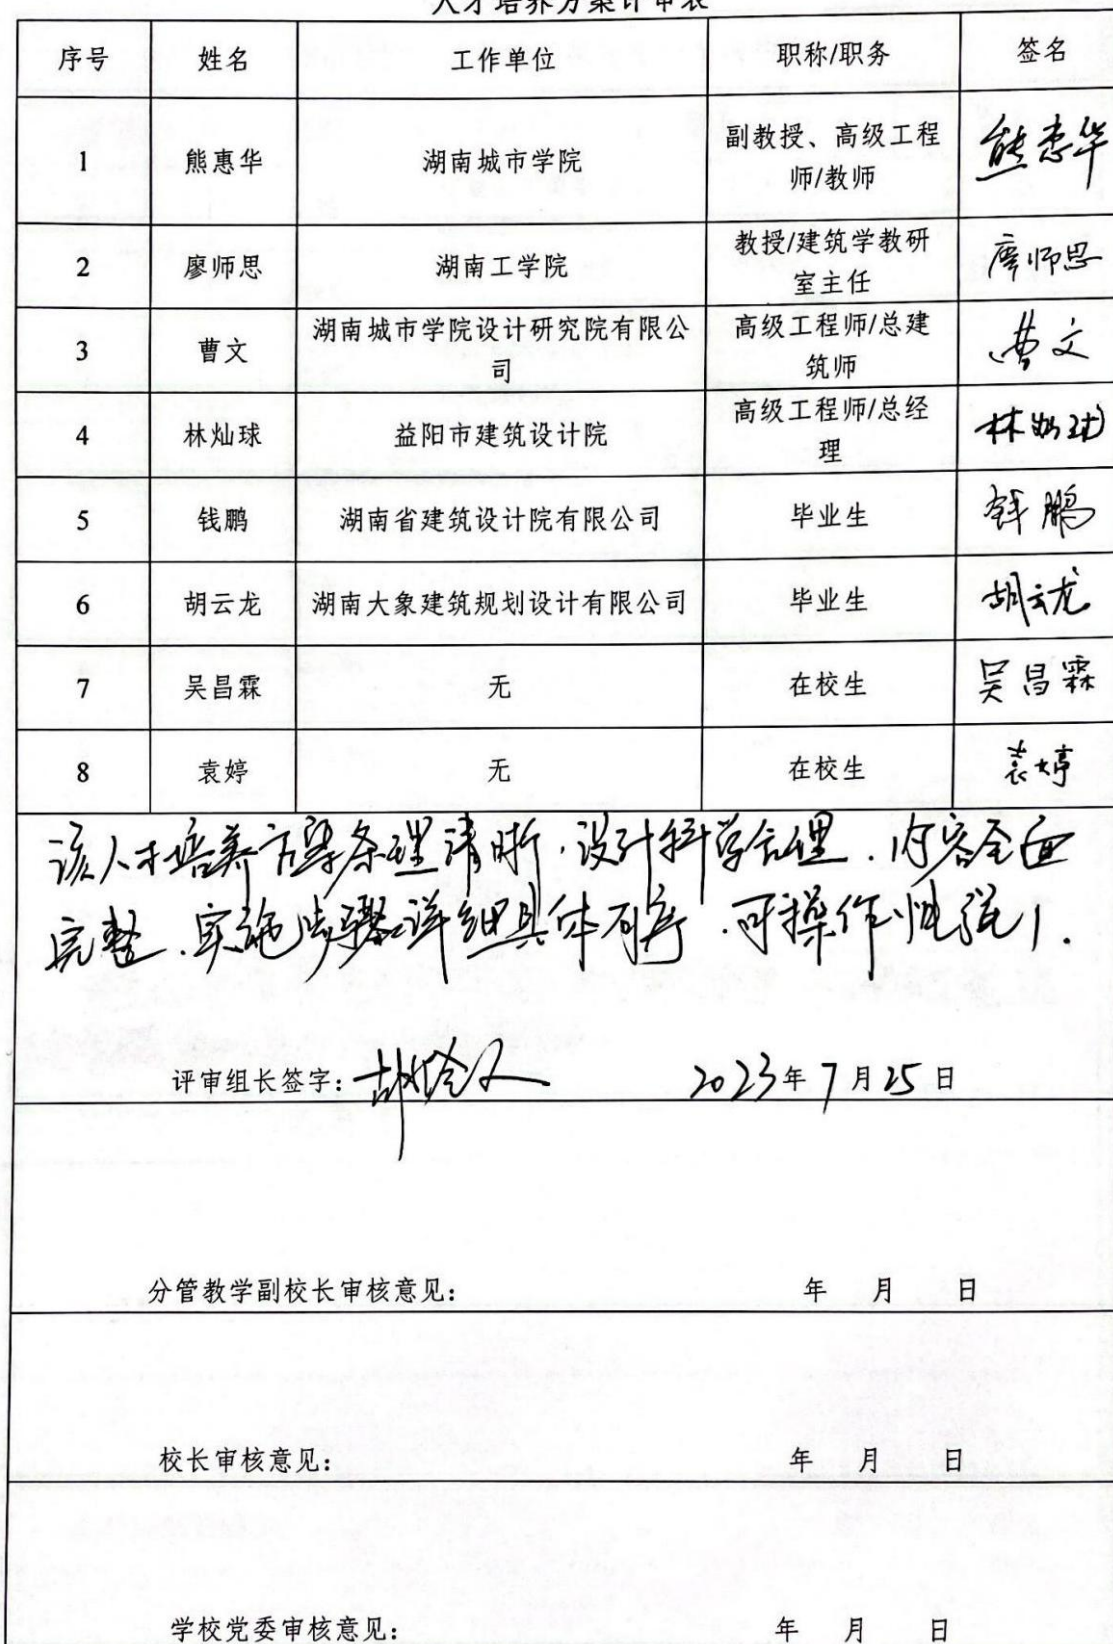 人才培养方案评审表
序号 姓名 工作单位 职称/职务 签名
1 熊惠华 湖南城市学院 副教授、高级工程
师/教师 熊惠华
2 廖师思 湖南工学院 教授/建筑学教研
室主任 廖师思
3 曹文 湖南城市学院设计研究院有限公
司 高级工程师/总建
筑师 曹文
4 林灿球 益阳市建筑设计院 高级工程师/总经
理 林灿球
5 钱鹏 湖南省建筑设计院有限公司 毕业生 钱鹏
6 胡云龙 湖南大象建筑规划设计有限公司 毕业生 胡云龙
7 吴昌霖 无 在校生 吴昌霖
8 袁婷 无 在校生 袁婷
该人才培养方案条理清晰.设计科学合理.内容全面
完整.实施步骤详细具体有序.可操作性强.
评审组长签字: 2023年7月25日
分管教学副校长审核意见: 年 月 日
校长审核意见: 年 月 日
学校党委审核意见: 年 月 日